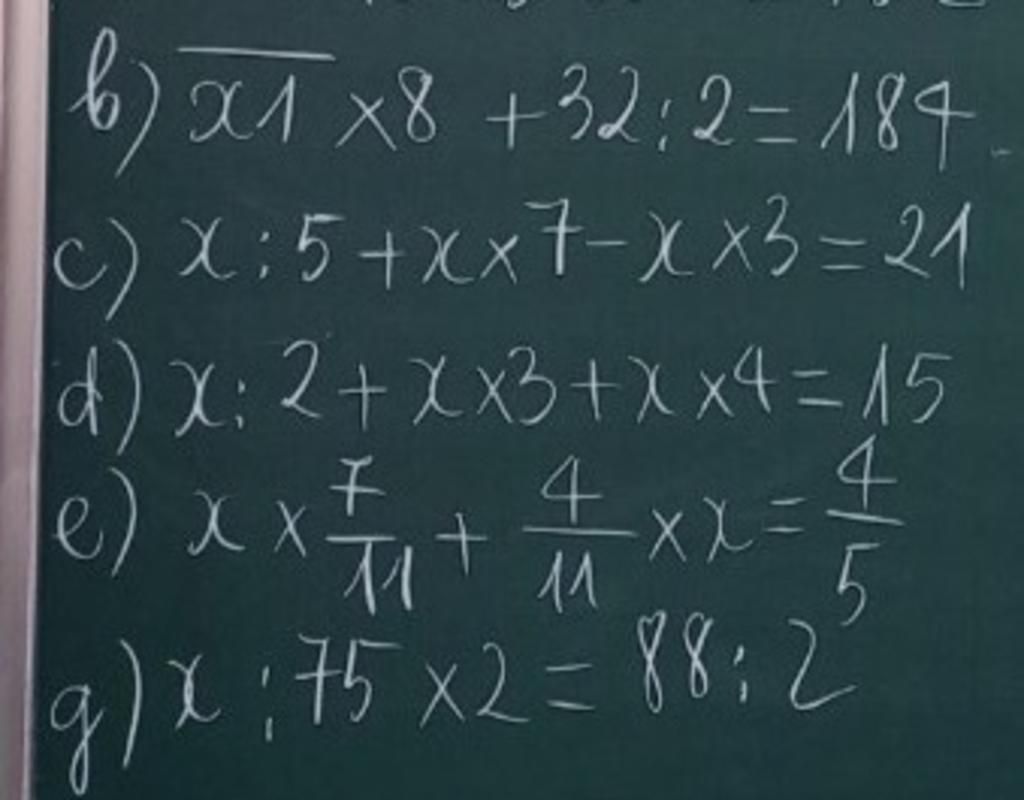 b) x̅1̅ ×8 + 32 : 2 = 184
c) x : 5 + x × 7 - x × 3 = 21
d) x : 2 + x × 3 + x × 4 = 15
e) x × 7/11 + 4/11 × x = 4/5
g) x : 75 × 2 = 88 : 2